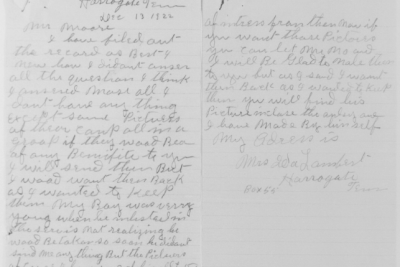 Harrogate Tenn
Dec 13 1922
Mr. Moore
I have filed out
the record as Best I
Know how I dident anser
all the Question I think
I ansered Most all I
dont have any thing
except some Pictures
at their camp all in a
group if they wood Bea
at any Benefite to you
I will send them But
I wood want them Back
as I wanted to Keep
them My Boy was very
young when he enlested in
the servis Not realizing he
wood Be taken so soon he dident
send Me any thing But the Pictures
address from them Now if
you want those Pictures
you can let Me No and
I will Be Glad to Male them
to you but as I said I want
them Back as I wanted to Keep
them you will find his
Picture inclose the only one
I have Made By him self
My Adress is
Mrs Ida Lambert
Harrogate
Box 60 Tenn